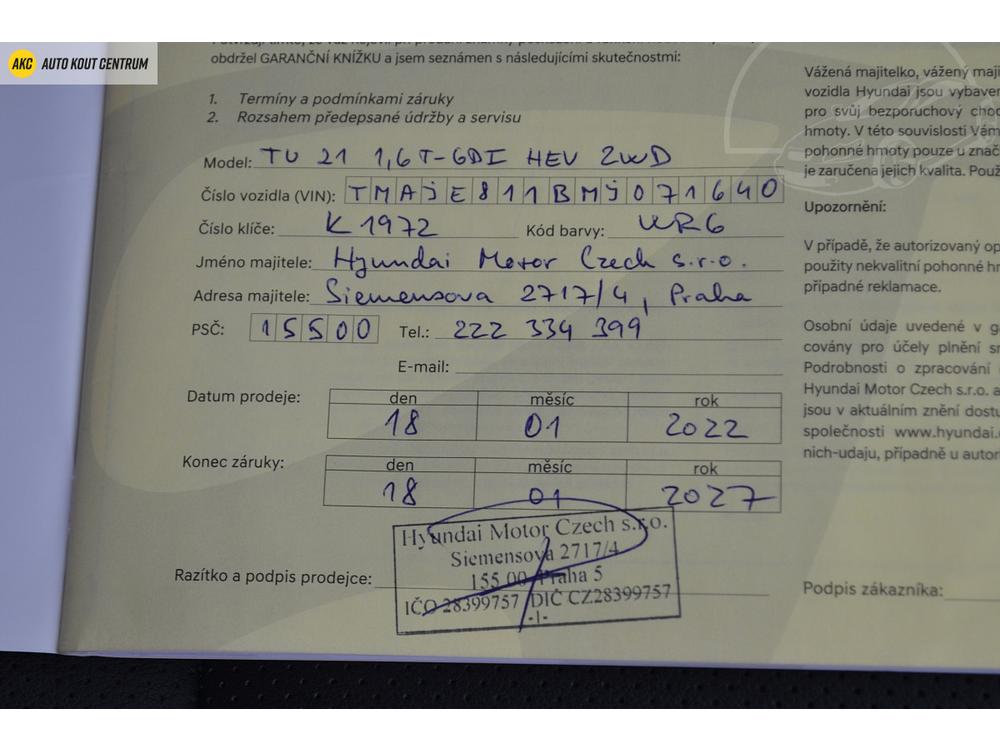 AKC AUTO KOUT CENTRUM
obdržel GARANČNÍ KNÍŽKU a jsem seznámen s následujícími skutečnostmi:
1. Termíny a podmínkami záruky
2. Rozsahem předepsané údržby a servisu
Model: TU 21 1,6T-GDI HEV 2WD
Číslo vozidla (VIN): TMAJE811BMJ071640
Číslo klíče: K 1972 Kód barvy: WR6
Jméno majitele: Hyundai Motor Czech s.r.o.
Adresa majitele: Siemensova 2717/4, Praha
PSČ: 15500 Tel.: 222 334 399
E-mail:
Datum prodeje: den měsíc rok
18 01 2022
Konec záruky: den měsíc rok
18 01 2027
Razítko a podpis prodejce:
Hyundai Motor Czech s.r.o.
Siemensova 2717/4
155 00 Praha 5
IČO 28399757 DIČ CZ28399757
-1-
Vážená majitelko, vážený
vozidla Hyundai jsou
pro svůj bezporuchový
hmoty. V této souvislosti Vám
pohonné hmoty pouze u
je zaručena jejich kvalita.
Upozornění:
V případě, že autorizovaný
použity nekvalitní pohonné
případné reklamace.
Osobní údaje uvedené v
covány pro účely plnění
Podrobnosti o zpracování
Hyundai Motor Czech s.r.o. a
jsou v aktuálním znění
společnosti www.hyundai.
nich-udaju, případně u
Podpis zákazníka: